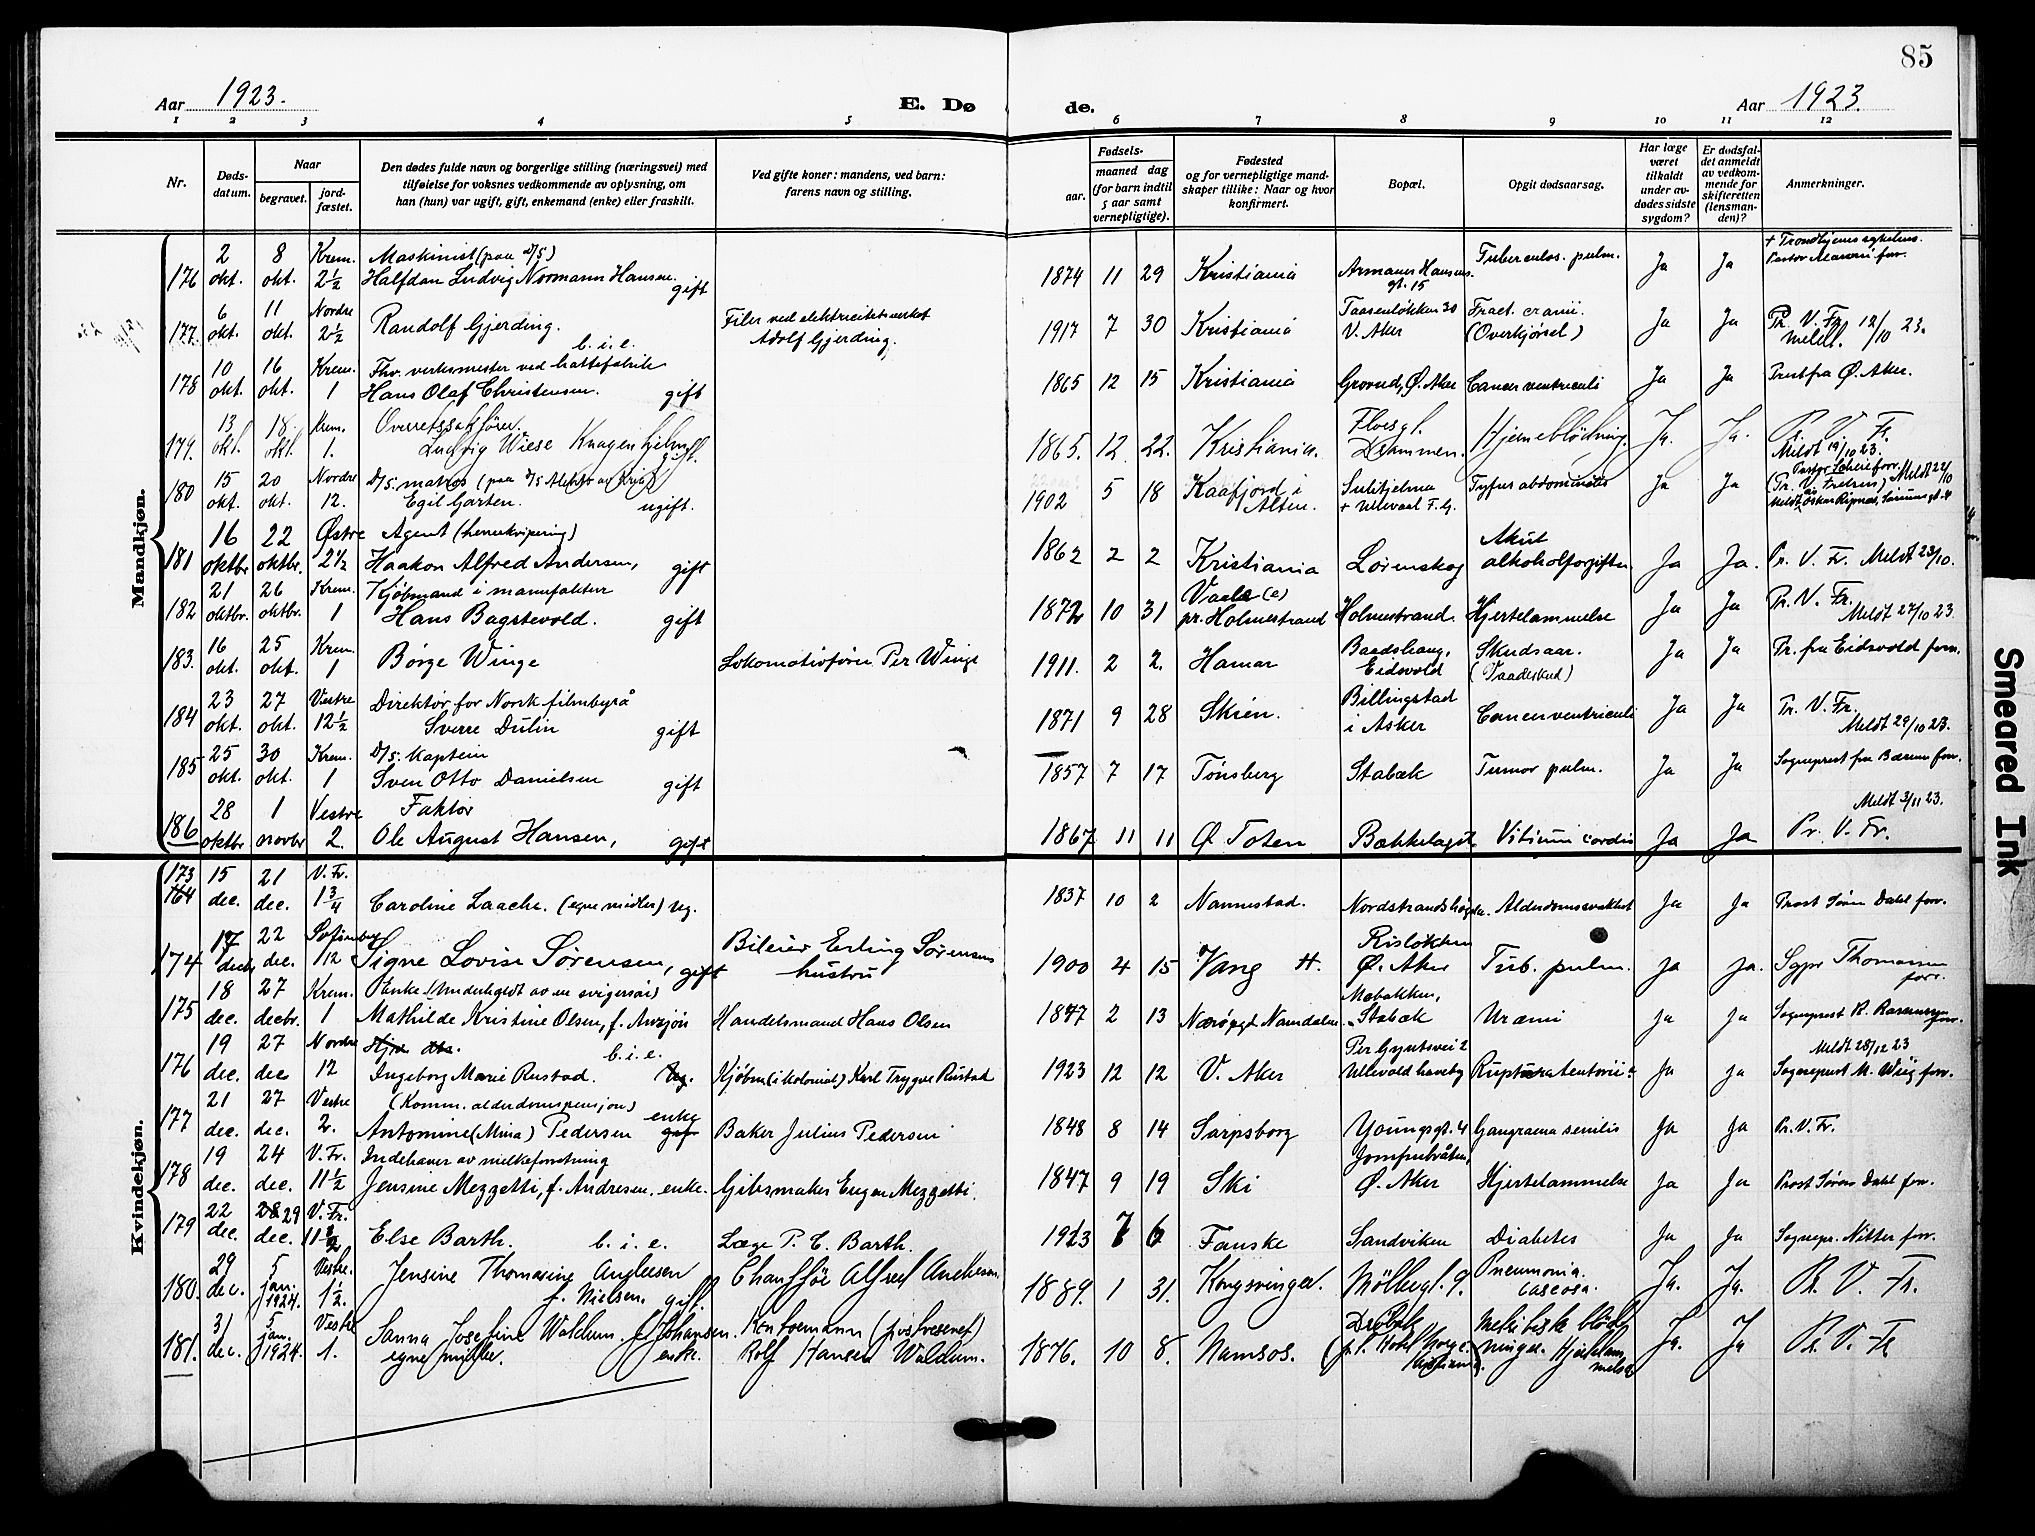 85
Aar 1923. E. Dø de. Aar 1923.
1 2 3 4 5 6 7 8 9 10 11 12
Nr. Døds-datum. Naar begravet. jord-fæstet. Den dødes fulde navn og borgerlige stilling (næringsvei) med tilføielse for voksnes vedkommende av oplysning, om han (hun) var ugift, gift, enkemand (enke) eller fraskilt. Ved gifte koner: mandens, ved barn: farens navn og stilling. Fødsels- aar. maaned dag (for barn indtil 5 aar samt vernepligtige). Fødested og for vernepligtige mand-skaper tillike: Naar og hvor konfirmert. Bopæl. Opgit dødsaarsag. Har læge været tilkaldt under av-dødes sidste sygdom? Er dødsfal-det anmeldt av vedkom-mende for skifteretten (lensman-den)? Anmerkninger.
Mandkjøn.
176 2 okt. 8 okt. Krem. 2½ Maskinist (paa d/s) Halfdan Ludvig Normann Hansen. gift 1874 11 29 Kristiania Armauer Hansens gt. 15 Tuberculos. pulm. Ja Ja + Trondhjems sykehus. Pastor forr.
177. 6 okt. 11 okt. Nordre 2½ Randolf Gjerding. b. i. e. Filer ved elektricitetsverket Adolf Gjerding. 1917 7 30 Kristiania Taasenløkken 30 V. Aker Fract. cranii. (Overkjørsel) Ja Ja Pr. V. Fr. meldt. 12/10 23.
178 10 okt. 16 okt. Krem. 1 Fhv. verksmester ved hattefabrik Hans Olaf Christensen. gift 1865 12 15 Kristiania Grorud, Ø. Aker Cancer ventriculi Ja Ja Prest fra Ø. Aker.
179. 13 okt. 18. okt. Krem. 1. Overretssakfører. Ludvig Wiese Knagenhjelm gift. 1865. 12. 22. Kristiania. Floesgt. Drammen. Hjerneblödning. Ja. Ja. Pr. V. Fr. Meldt 19/10 23.
180 15 okt. 20 okt. Nordre 12. D/s. matros (paa d/s ) Egil Garten. ugift. 1902 5 18 Kaafjord i Alten. Sulitjelma + Ullevaal Tyfus abdominalis Ja Ja Pastor forr. (Pr. V. Frelsers) Meldt 22/10 Meldt Oskar
181 16 oktbr 22 oktbr. Østre 2½ Agent (herrekvipering) Haakon Alfred Andersen, gift 1862 2 2 Kristiania Lørenskog Akut alkoholforgiftn. Ja Ja. Pr. V. Fr. Meldt 23/10.
182 21 oktbr. 26 oktbr. Krem. 1 Kjøbmand i manufaktur Hans Bagstevold. gift 1872 10 31 Vaale (e) pr. Holmestrand Holmestrand. Hjertelammelse Ja Ja Pr. V. Fr. Meldt 27/10 23.
183. 16 okt. 25 okt. Krem. 1 Børge Winge Lokomotivfører Per Winge 1911. 2 2. Hamar Eidsvold Skudsaar. (Vaadeskud) Ja Ja Pr. fra Eidsvold forr.
184 23 okt. 27 okt. Vestre 12½ Direktør for Norsk filmbyrå Sverre Dulin gift 1871 9 28 Skien. Billingstad i Asker Cancer ventriculi Ja Ja Pr. V. Fr. Meldt 29/10 23.
185 25 okt. 30 okt. Krem. 1 D/s. kaptein Sven Otto Danielsen gift 1857 7 17 Tønsberg Stabæk Tumor pulm. Ja Ja Sogneprest fra Bærum forr.
186 28 oktbr 1 novbr Vestre 2. Faktor Ole August Hansen, gift 1867 11 11 Ø Toten Bækkelaget Vitium cordis Ja Ja Meldt 3/11 23. Pr. V. Fr.
Kvindekjøn.
173 164 15 dec. 21 dec. V. Fr. 1¾ Caroline Laache. (egne midler) ug. 1837 10 2 Nannestad. Nordstrandshøgda. Alderdomssvakhet Ja Ja Prost Sören Dahl forr.
174 17 decbr 22 dec. Sofienberg 12 Signe Lovise Sørensen, gift Bileier Erling Sørensens hustru 1900 4 15 Vang H. Risløkken Ø. Aker Tub. pulm. Ja Ja. Sgpr Thomassen forr.
175 18 dec. 27 decbr. Krem. 1 Enke (Underholdt av en svigersøn) Mathilde Kristine Olsen, f. Anzjön Handelsmand Hans Olsen 1847 2 13 Nærö pgt. Namdalen Mobakken, Stabæk Uræmi Ja Ja Sogneprest R. Rasmussen forr.
176 19 dec. 27 dec Nordre 12 b. i. e. Ingeborg Marie Rustad. Ug. Kjøbm (i kolonial) Karl Trygve Rustad 1923 12 12 V. Aker Per Gyntsvei 2 Ullevold haveby Ruptura tentorii Ja Ja Meldt 28/12 23 Sogneprest M. Wiig forr.
177 21 dec. 27 dec. Vestre 2. (Komm. alderdomspensjon) Antomine (Mina) Pedersen enke gift Baker Julius Pedersen 1848 8 14 Sarpsborg Youngsgt. 4 Gangraena senilis Ja Ja Pr. V. Fr.
178 19 dec. 24 dec. V. Fr. 11½ Indehaver av melkeforretning Jensine Mezzetti, f. Andresen. enke. Gibsmaker Eugen Mezzetti. 1847 9 19 Ski Jomfrubråten, Ø. Aker Hjertelammelse Ja Ja Prost Sören Dahl forr.
179 22 dec. 28 29 dec. V. Fr. 11½ Else Barth. b. i. e. Læge P. C. Barth. 1923 7 6 Fauske Sandviken Diabetes Ja Ja Sognepr. Nitter forr.
180. 29 dec. 5 jan. 1924. Vestre. 1½. Jensine Thomasine Andersen f. Nielsen. gift. Chaufför Alfred Andersen 1889. 1 31. Kongsvinger. Möllergt. 9. Pneumonia. caseosa. Ja. Ja. Pr. V. Fr.
181. 31 dec. 5 jan. 1924. Vestre 1. Sanna Josefine Waldum. f. Johansen. egne midler. enke. Kontormann (postvesenet) Rolf Hansen Waldum. 1876. 10 8. Namsos. Dröbak (p. t. Hotel Norge ) Ja. Ja Pr. V. Fr
Smeared Ink